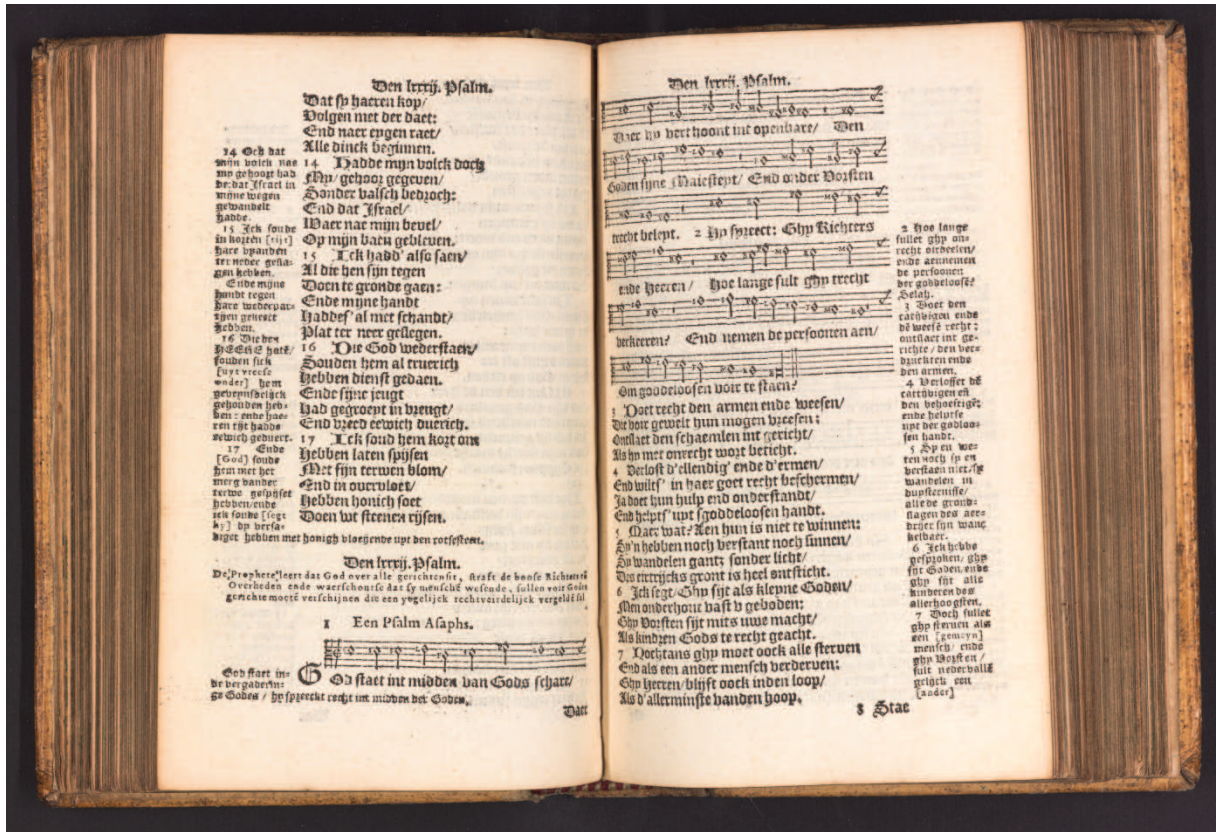 Den lxxxij. Psalm.
Dat sy haeren kop/
Volgen met der daet:
End naer eygen raet/
Alle dinck beginnen.
14 Hadde mijn volck doch
My/ gehoor gegeven/
Sonder valsch bedroch:
End dat Israel/
Waer nae mijn bevel/
Op mijn baen gebleven.
15 Ick hadd' also saen/
Al die hen sijn tegen
Doen te gronde gaen:
Ende mijne handt
Haddes' al met schandt/
Plat ter neer geslegen.
16 Die God wederstaen/
Souden hem al truerich
Hebben dienst gedaen.
Ende sijne jeugt
Had gegroeyt in vreugt/
End vreed eewich duerich.
17 Ick soud hem kort om
Hebben laten spijsen
Met sijn terwen blom/
End in overvloet/
Hebben honich soet
Doen wt steenen rijsen.
14 Och dat
mijn volck nae
my gehoort had
de: dat Israel in
mijne wegen
gewandelt
hadde.
15 Ick soude
in korten [tijt]
hare vyanden
ter neder gesla-
gen hebben.
Ende mijne
handt tegen
hare wederpar-
tijen gekeert
hebben.
16 Die den
HEERE hatē/
souden sich
[uyt vreese
onder] hem
geveynsdelijck
gehouden heb-
ben: ende hae-
ren tijt hadde
eewich geduert.
17 Ende
[God] soude
hem met het
merg vander
terwe gespijset
hebben/ende
ick soude [segt
hy] dy versa-
diget hebben met honigh vloeyende uyt den rotsesteen.
Den lxxxij. Psalm.
De Prophete leert dat God over alle gerichten sit, straft de boose Richters eñ
Overheden ende waerschouwt dat sy menschē wesende, sullen voir Godes
gerichte moetē verschijnen die een yegelijck rechtveirdelijck vergeldē sal
1 Een Psalm Asaphs.
GOd staet int midden van Gods schare/
God staet in-
de vergaderin-
ge Godes / hy spreeckt recht int midden der Goden.
Daer
Den lxxxij. Psalm.
Daer hy verthoont int openbare/ Den
Goden sijne Maiesteyt/ End onder Vorsten
trecht beleyt. 2 Hy spreect: Ghy Richters
ende Heeren / Hoe lange sult ghy trecht
verkeeren? End nemen de persoonen aen/
Om goddeloosen voir te staen?
3 Doet recht den armen ende weesen/
Die voir gewelt hun mogen vreesen:
Ontslaet den schaemlen int gericht/
Als hy met onrecht wort beticht.
4 Verlost d'ellendig' ende d'ermen/
End wilts' in haer goet recht beschermen/
Ja doet hun hulp end onderstandt/
End helpts' uyt sgoddeloosen handt.
5 Maer wat? Aen hun is niet te winnen:
Sy'n hebben noch verstant noch sinnen/
Sy wandelen gantz sonder licht/
Des eertrijcks gront is heel ontsticht.
6 Ick segt/Ghy sijt als kleyne Goden/
Men onderhoue vast v geboden:
Ghy Vorsten sijt mits uwe macht/
Als kindren Gods te recht geacht.
7 Nochtans ghy moet oock alle sterven
End als een ander mensch verderven:
Ghy Heeren/blijft oock inden loop/
Als d'allerminste vanden hoop.
8 Stae
2 Hoe lange
sullet ghy on-
recht oirdeelen/
ende aennemen
de persoonen
der goddeloosē?
Selah.
3 Doet den
catijvigen ende
dē weesē recht:
ontslaet int ge-
richte / den ver-
druckten ende
den armen.
4 Verlosset dē
cattijvigen eñ
den behoeftigē:
ende helptse
uyt der godloo-
sen handt.
5 Sy en we-
ten noch sy en
verstaen niet/sy
wandelen in
duysternisse/
alle de grond-
slagen des aer-
drijcx sijn wanc
kelbaer.
6 Ick hebbe
gesproken/ ghy
sijt Goden/ende
ghy sijt alle
kinderen des
allerhoogsten.
7 Doch sullet
ghy sterven als
een [gemeyn]
mensch/ ende
ghy Vorsten /
sult nedervallē
gelijck een
[ander]